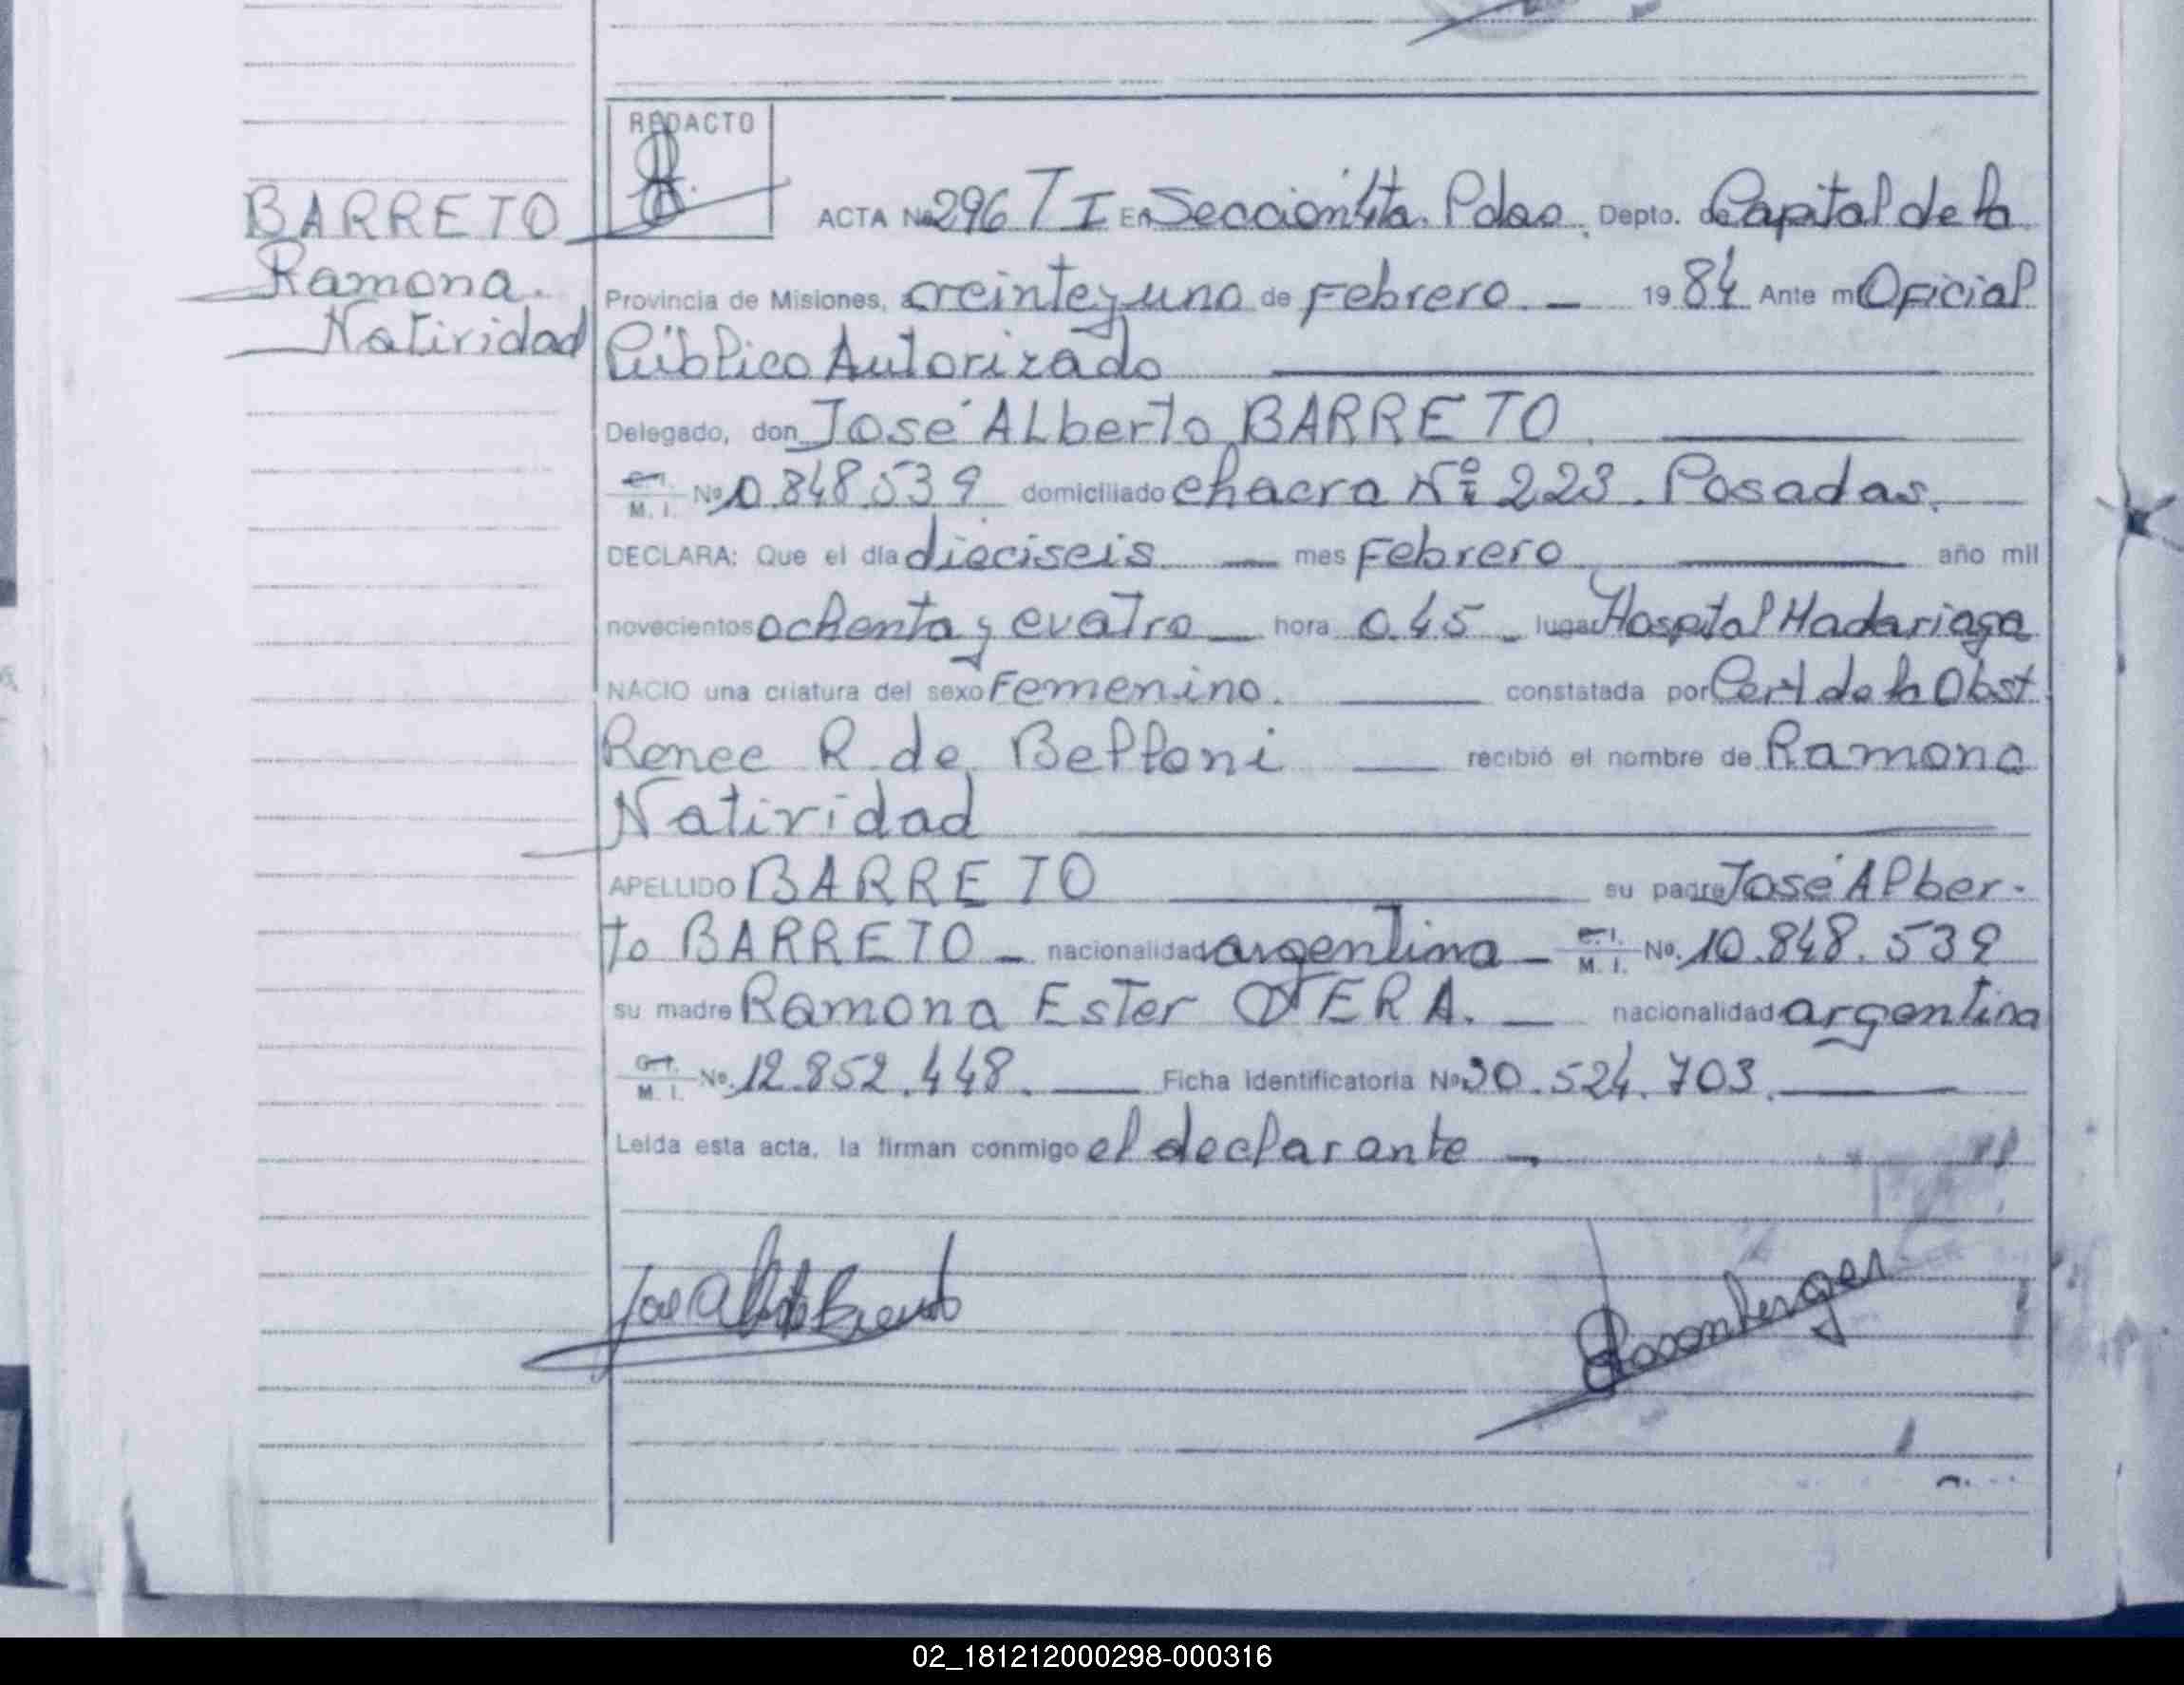 REDACTO
BARRETO
Ramona.
Natividad
ACTA Nº 296 T I En Sección 4ta. Pdas. Depto. de Capital de la
Provincia de Misiones, a veinte y uno de Febrero 1984 Ante mi Oficial
Público Autorizado
Delegado, don José ALberto BARRETO
C.I. M. I. Nº 10.848.539 domiciliado chacra Nº 223. Posadas.
DECLARA: Que el día dieciseis mes Febrero año mil
novecientos ochenta y cuatro hora 0.45 lugar Hospital Madariaga
NACIO una criatura del sexo Femenino. constatada por Cert de la Obst.
Renee R de Belloni recibió el nombre de Ramona
Natividad
APELLIDO BARRETO su padre José Alber-
to BARRETO nacionalidad argentina C.I. M. I. Nº. 10.848.539
su madre Ramona Ester VERA. nacionalidad argentina
C.I. M. I. Nº. 12.852.448. Ficha Identificatoria Nº 30.524.703.
Leída esta acta, la firman conmigo el declarante
Jose Alberto Barreto
02_181212000298-000316